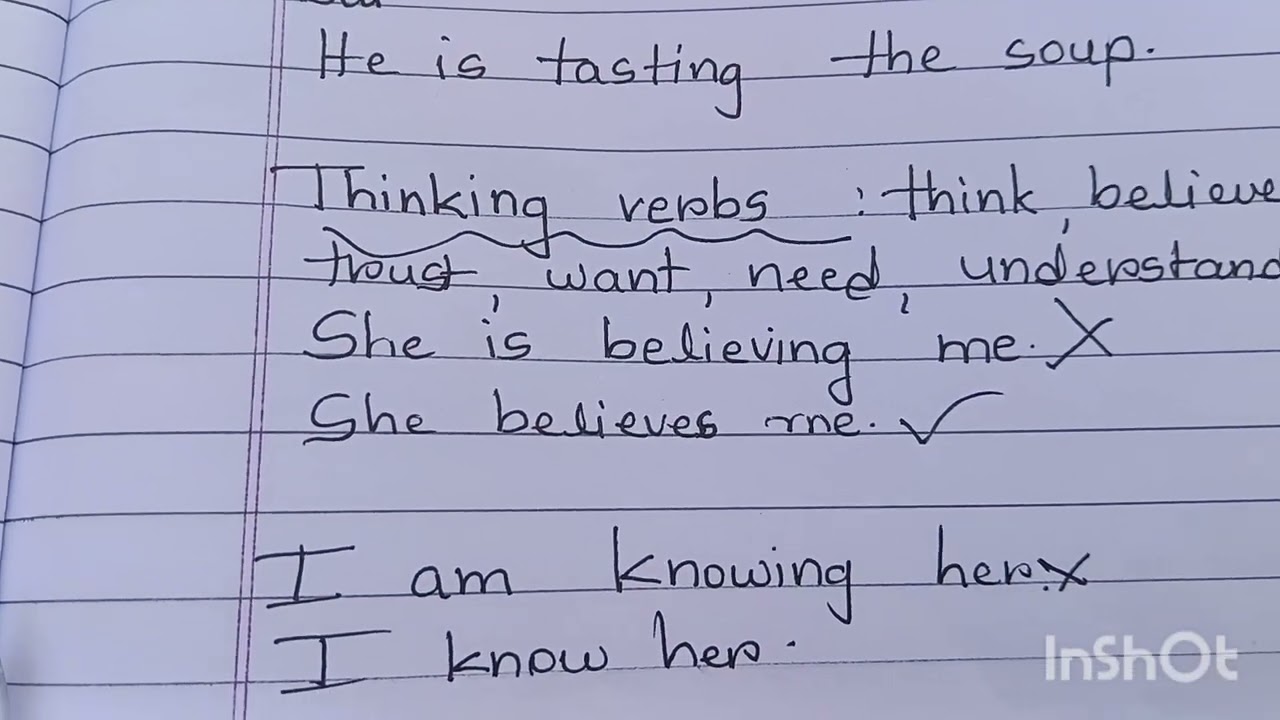 He is tasting the soup.
Thinking verbs : think, believe
troust, want, need, understand
She is believing me. X
She believes me. ✓
I am knowing her. x
I know her.
InShOt